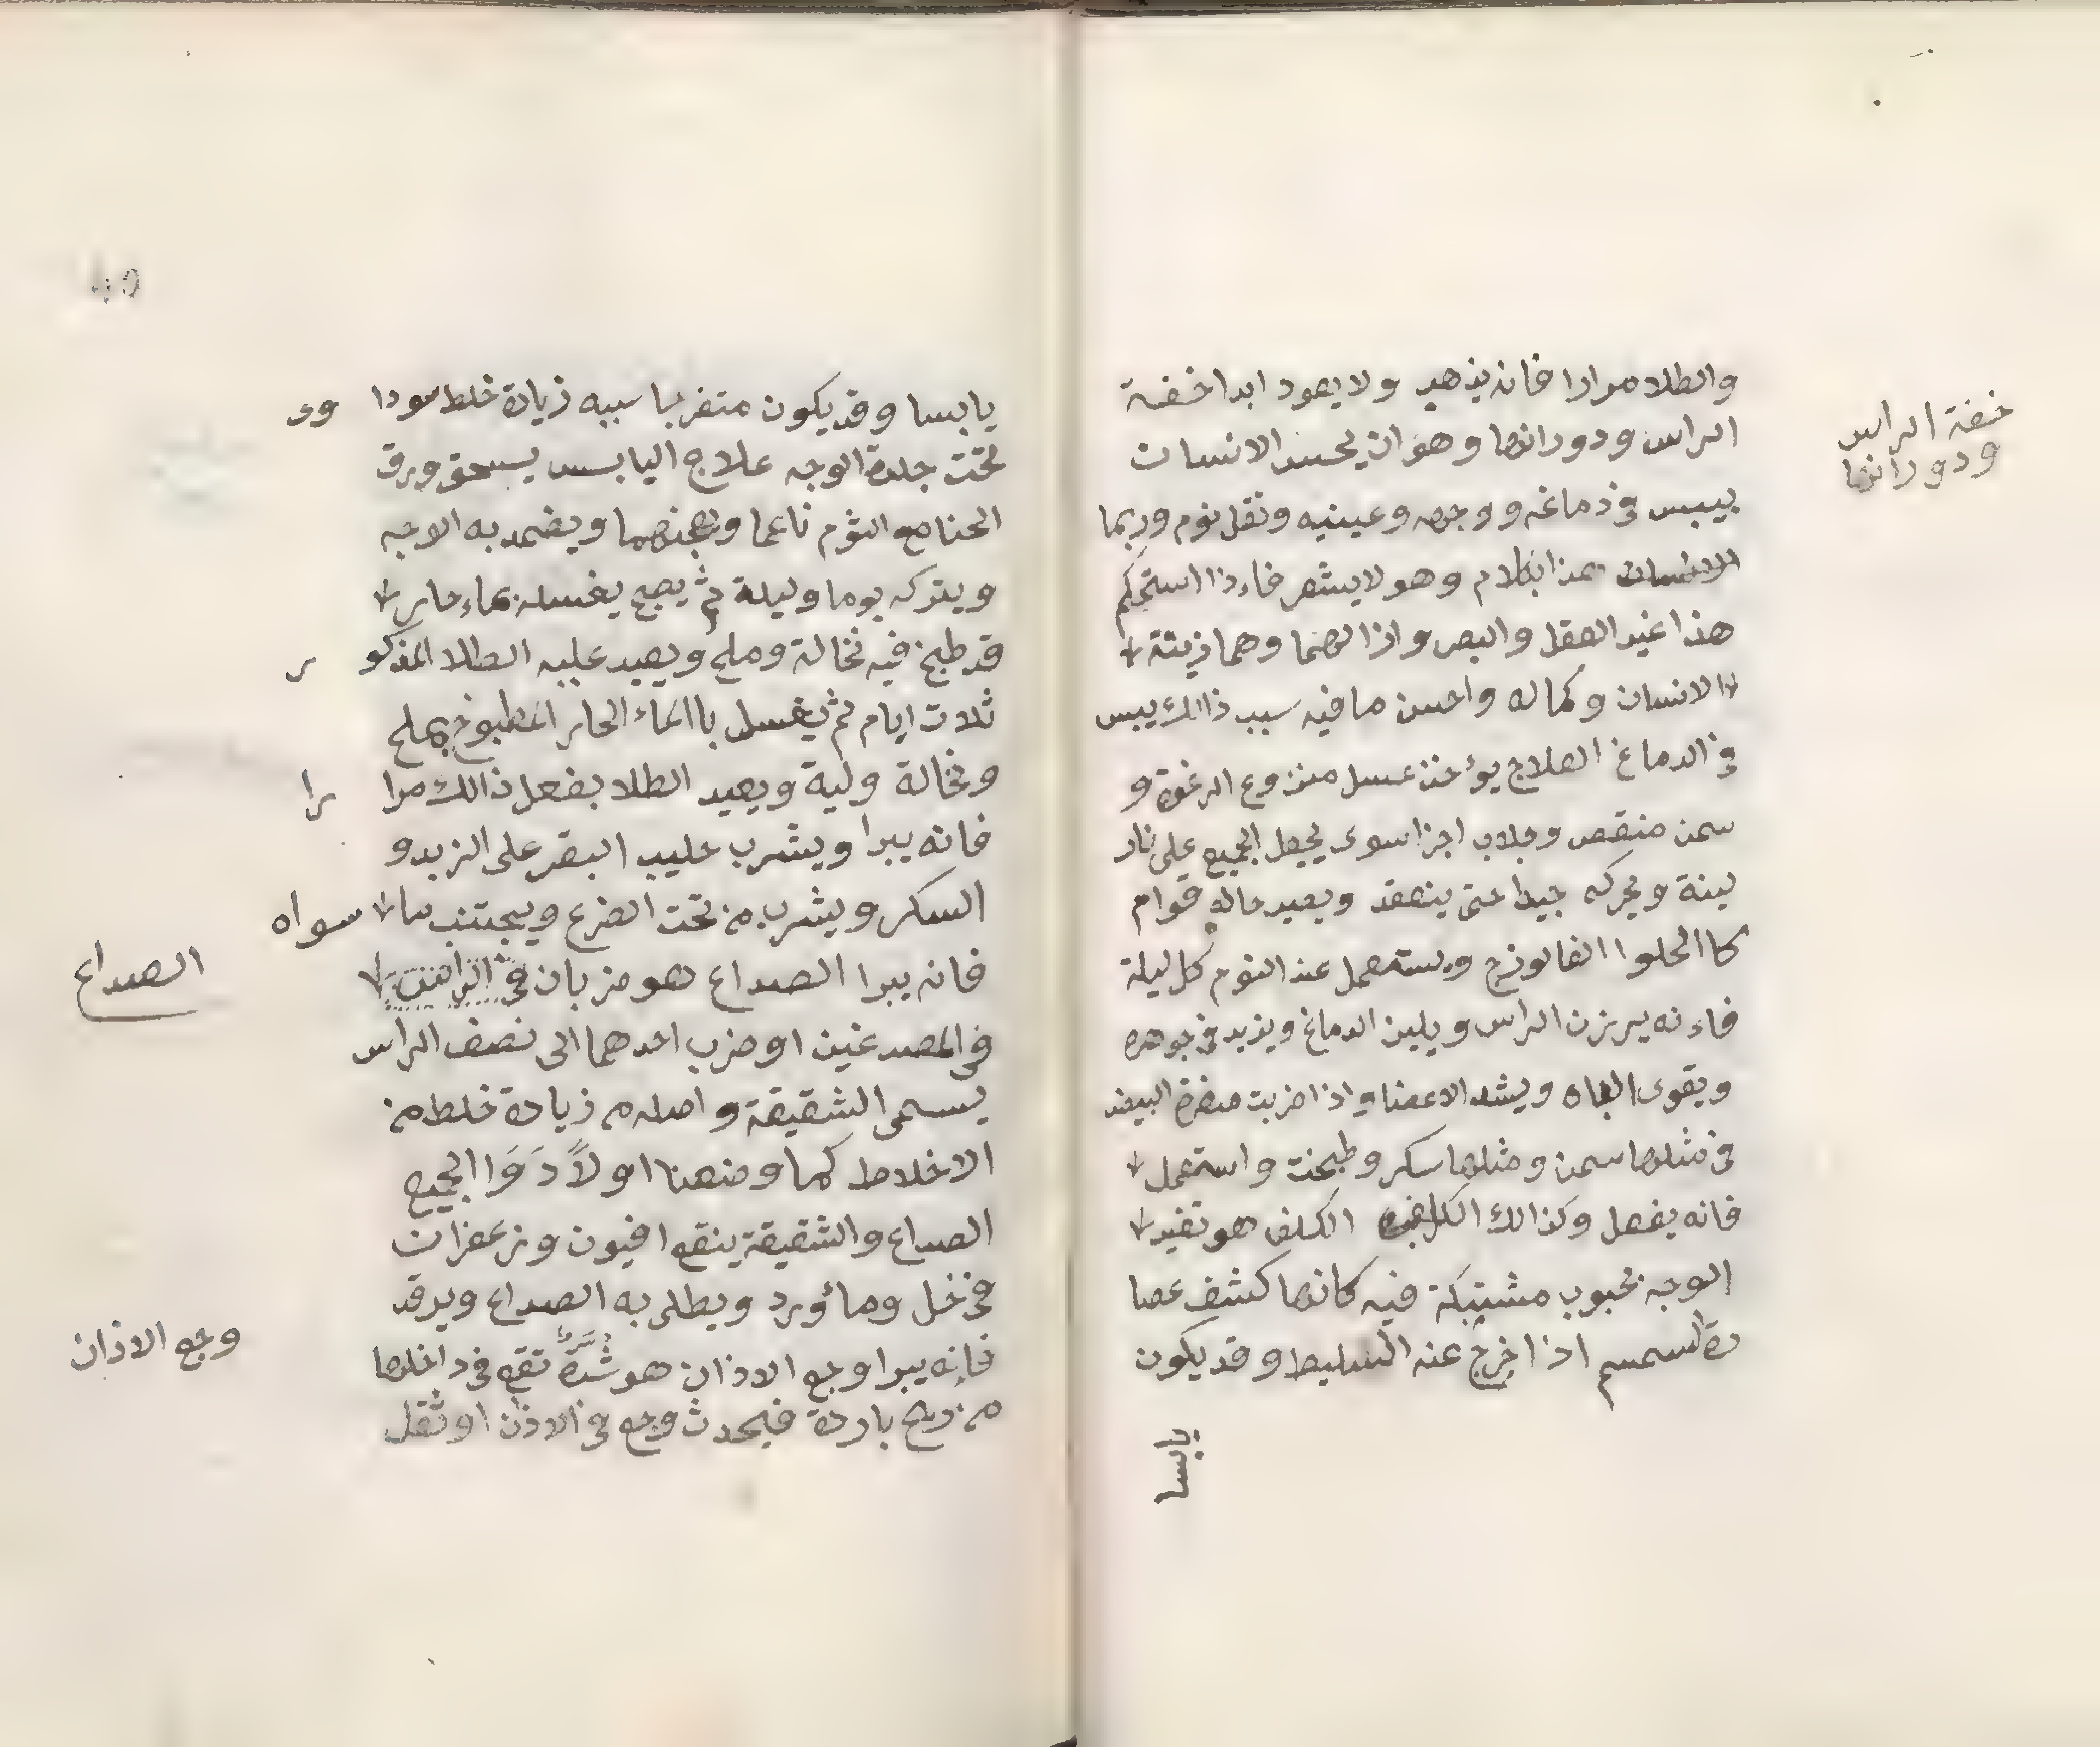 والطلا مرارا فانه يذهب ولا يعود ابدا خفة
الراس ودورانها وهو ان يحس الانسان
بيبس في دماغه ووجهه وعينيه وثقل نوم وربما
الانسان بكلام وهو لا يشعر فاءذا استحكم
هذا غير العقل والبصر واذا وهما زينة
الانسان وكماله واحسن ما فيه سبب ذالك يبس
في الدماغ العلاج يؤخذ عسل منزوع الرغوة و
سمن وجلاب اجزا سوى يجعل الجميع على نار
لينة ويحركه جيدا حتى ينعقد ويعيد حاله قوام
كاالحلوا الفالوذج ويستعمل عند النوم كل ليلة
فاءنه يرزن الراس ويلين الدماغ ويزيد في جوهره
ويقوى الباه ويشد الاعضا واذا ضربت صفرة البيض
في مثلها سمن ومثلها سكر وطبخت واستعمل
فانه يفعل وكذالك الكلف هو تغير
الوجه بحبوب مشتبكة فيه كانها كشف عصا
رة السمسم اذا اخرج عنه السليط وقد يكون
يابسا
خفة الراس
ودورانها
يابسا وقد يكون متقرحا سببه زيادة خلط سودا وى
تحت جلدة الوجه علاج اليابس يسحق ورق
الحنا مع الثوم ناعما ويعجنهما ويضمد به الاجه
ويتركه يوما وليلة ثم يصبح يغسله بماء حار
قد طبخ فيه نخالة وملح ويعيد عليه الطلا المذكو ر
ثلاث ايام ثم يغسل باالماء الحار المطبوخ بملح
ونخالة ولية ويعيد الطلا يفعل ذالك مرا را
فانه يبرا ويشرب حليب البقر على الزبد و
السكر ويشرب من تحت الضرع ويجتنب ما سواه
فانه يبرا الصداع هو ضربان في الراس
في المصدغين او ضرب احدهما الى نصف الراس
يسمى الشقيقة واصله من زيادة خلط من
الاخلاط كما وضعنا اولاً دَوَا الجميع
الصداع والشقيقة ينقع افيون وزعفران
في خل وماورد ويطلى به الصداع ويرقد
فانه يبرا وجع الاذان هو شدة تقع في داخلها
من ريح باردة فيحدث وجع في الاذن او ثقل
الصداع
وجع الاذان